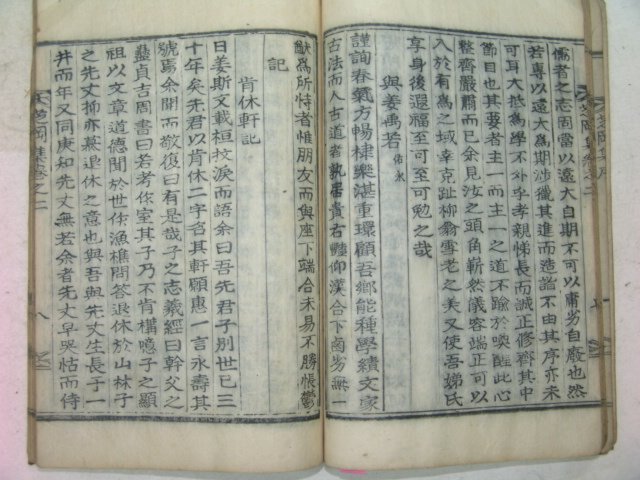 儒者之志固當以遠大自期不可以庸劣自廢也然
若專以遠大爲期涉獵其進而造詣不由其序亦未
可耳大抵爲學不外乎孝親悌長而誠正修齊其中
節目也其要者主一而主一之道不踰於喚醒此心
整齊嚴肅而已余見汝之頭角嶄然儀容端正可以
入於有爲之域幸克趾柳翁雪老之美又使吾娣氏
享身後遐福至可至可勉之哉
與姜禹若 佑永
謹詢春氣方暢棣樂湛重環顧吾鄕能種學績文家
古法而人古道者孰居貴右豔仰漢合下鹵劣無一
猷爲所恃者惟朋友而與座下端合未易不勝悵鬱
記
肯休軒記
日姜斯文載桓抆淚而語余曰吾先君子別世已三
十年矣先君以肯休二字名其軒願惠一言永壽其
號焉余聞而敬復曰有是哉子之志羲經曰幹父之
蠱貞吉周書曰若考作室其子乃不肯構噫子之顯
祖以文章道德聞於世作漁樵問答退休於山林子
之先丈抑亦慕退休之意也與吾與先丈生長子一
井而年又同庚知先丈無若余者先丈早哭怙而侍